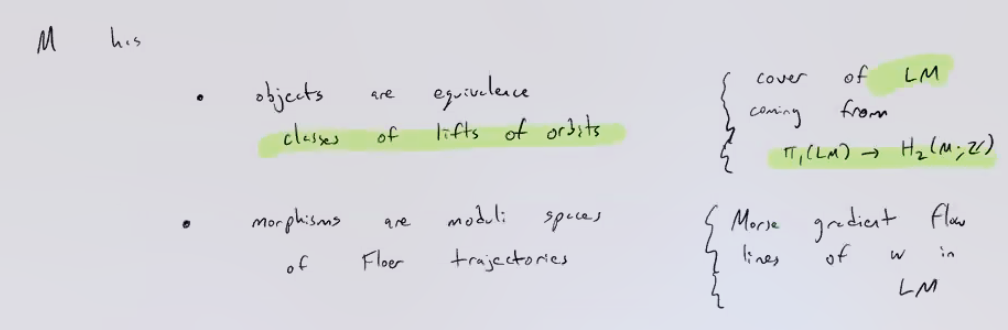 M has
• objects are equivalence
classes of lifts of orbits
{ cover of LM
coming from
π₁(LM) → H₂(M;ℤ)
• morphisms are moduli spaces
of Floer trajectories
{ Morse gradient flow
lines of w in
LM